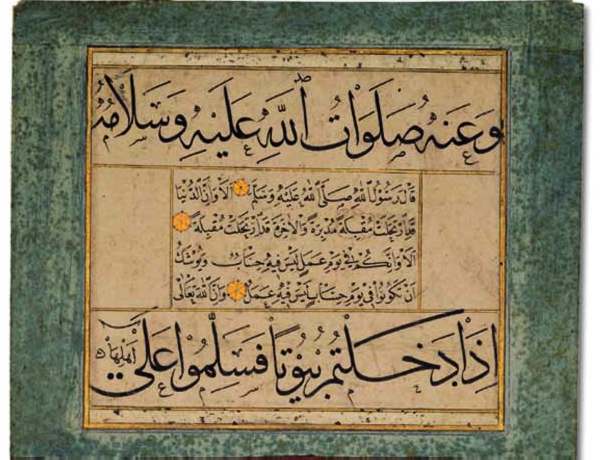 وَعَنْهُ صَلَوَاتُ اللهِ عَلَيْهِ وَسَلَامُهُ
قَالَ رَسُولُ اللهِ صَلَّى اللهُ عَلَيْهِ وَسَلَّمَ اَلَا وَاِنَّ الدُّنْيَا
قَدِ ارْتَحَلَتْ مُقْبِلَةً مُدْبِرَةً وَالْاٰخِرَةَ قَدِ ارْتَحَلَتْ مُقْبِلَةً
اَلَا وَاِنَّكُمْ فِي يَوْمِ عَمَلٍ لَيْسَ فِيهِ حِسَابٌ وَيُوشَكُ
اَنْ تَكُونُوا فِي يَوْمِ حِسَابٍ لَيْسَ فِيهِ عَمَلٌ وَاِنَّ اللهَ تَعَالَى
اِذَا دَخَلْتُمْ بُيُوتًا فَسَلِّمُوا عَلَى اَهْلِهَا